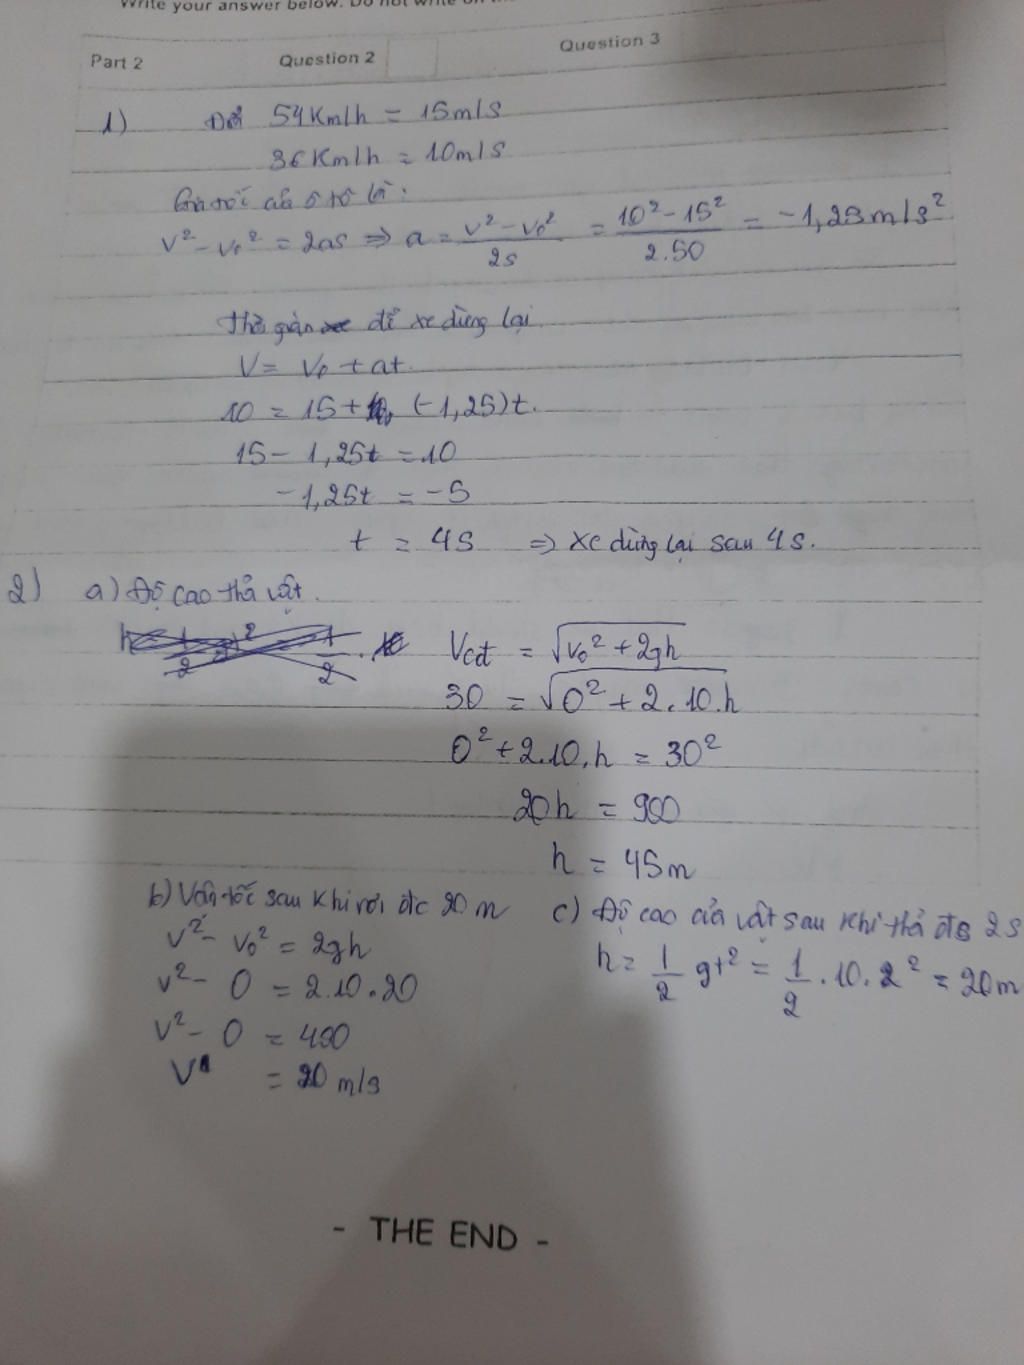 Write your answer below. Do not write on the
Part 2 Question 2 Question 3
1) Đổi 54Km/h = 15m/s
36Km/h = 10m/s
Gia tốc của ô tô là:
v² - v₀² = 2as ⇒ a = (v² - v₀²)/2s = (10² - 15²)/2.50 = -1,25m/s²
Thời gian để xe dừng lại
V = V₀ + at.
10 = 15 + (-1,25)t.
15 - 1,25t = 10
-1,25t = -5
t = 4s ⇒ xe dừng lại sau 4s.
2) a) Độ cao thả vật.
Vcđ = √(v₀² + 2gh)
30 = √(0² + 2.10.h)
0² + 2.10.h = 30²
20h = 900
h = 45m
b) Vận tốc sau khi rơi đc 20m
v² - v₀² = 2gh
v² - 0 = 2.10.20
v² - 0 = 400
V = 20 m/s
c) Độ cao của vật sau khi thả đc 2s
h = 1/2 gt² = 1/2 . 10. 2² = 20m
- THE END -